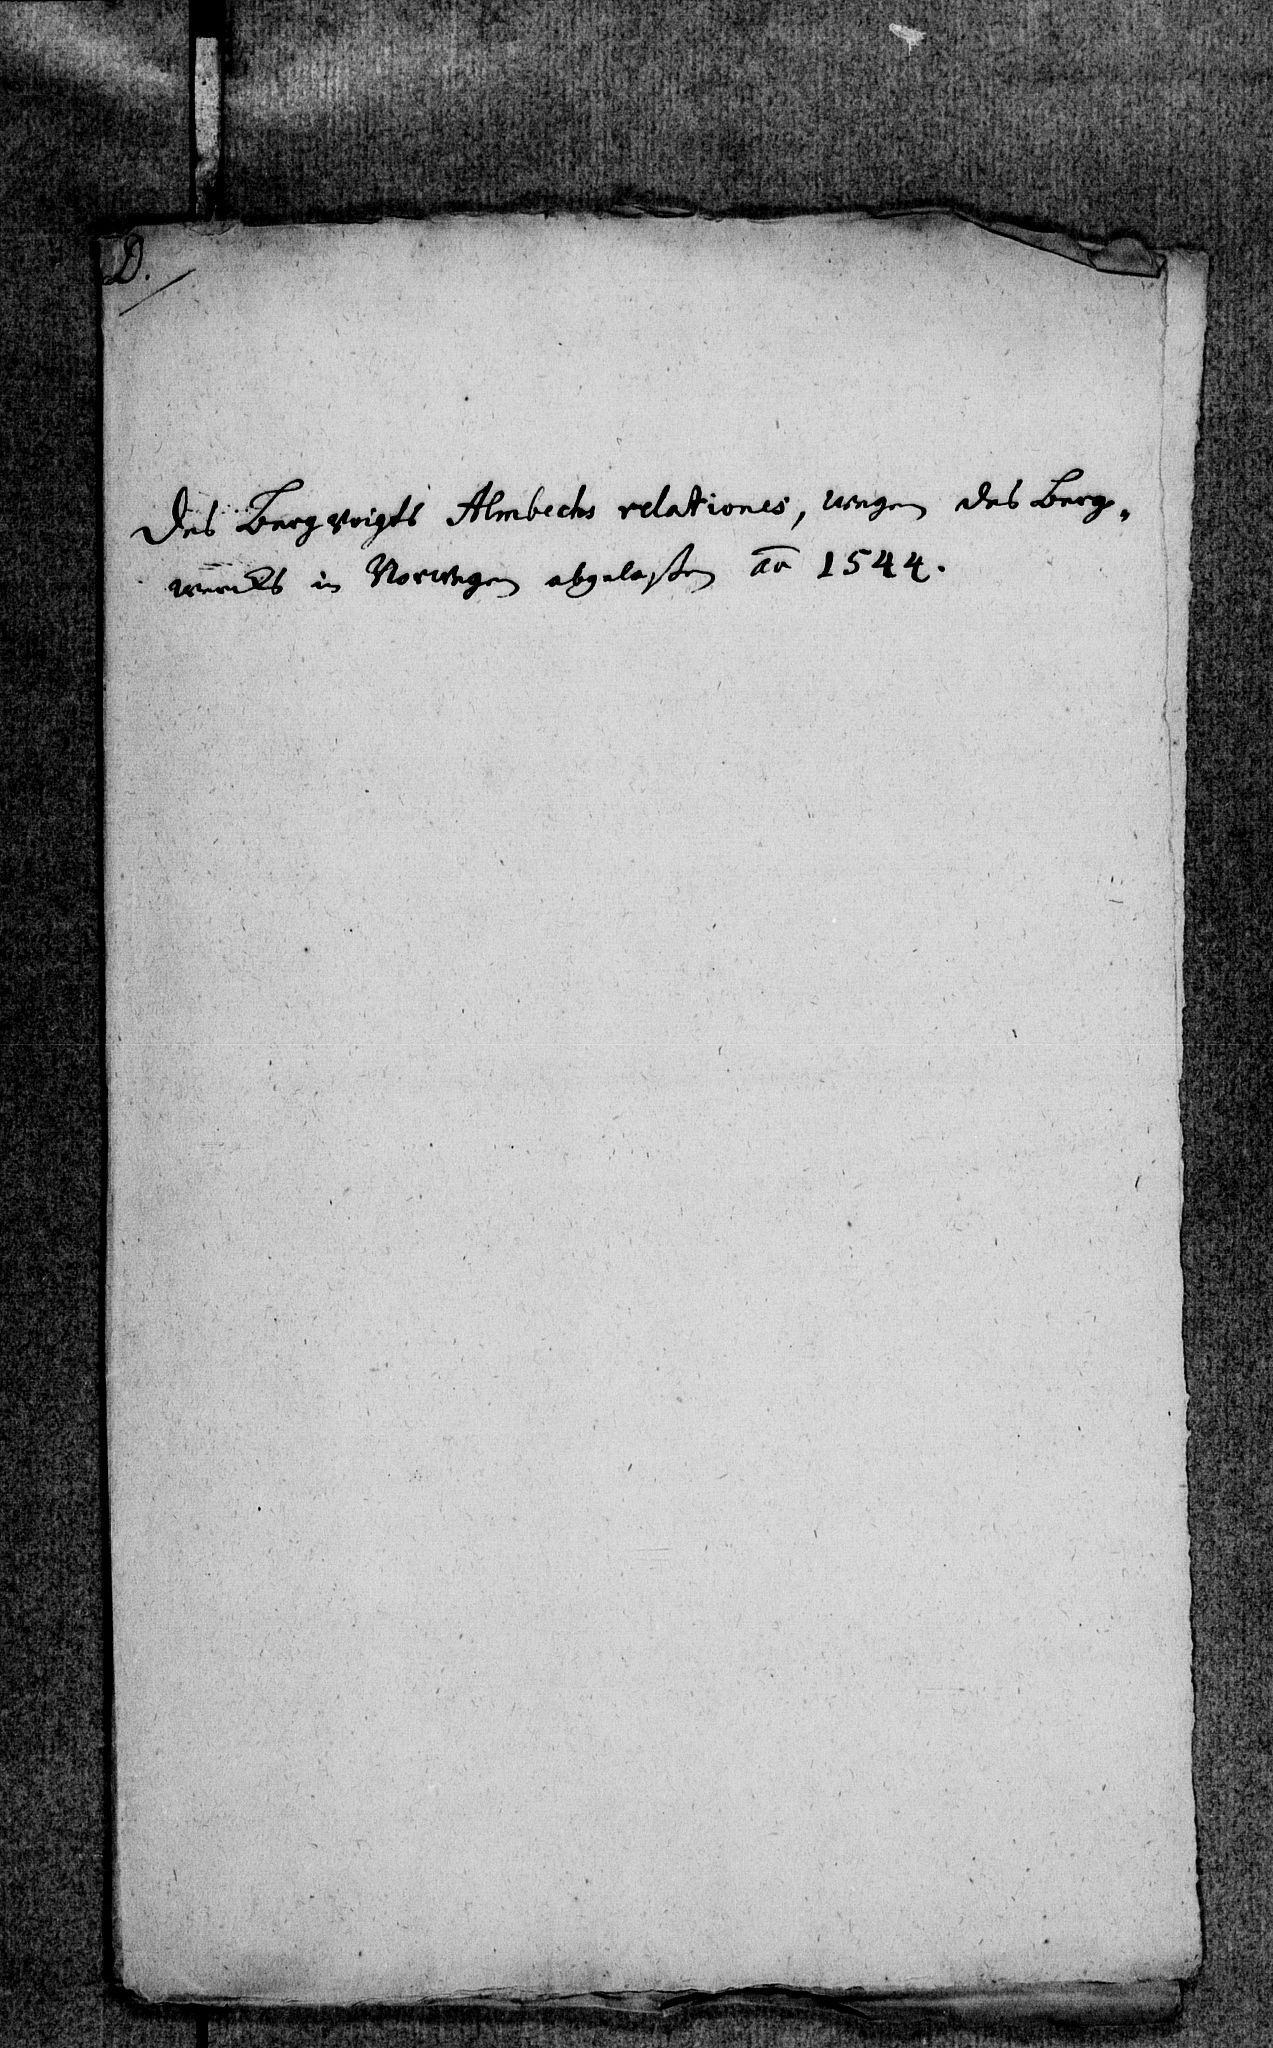 D.
Des Bergvoigts Almbechs relationes, wegen des Berg„
wercks in Norwegen abgelaßen aō 1544.